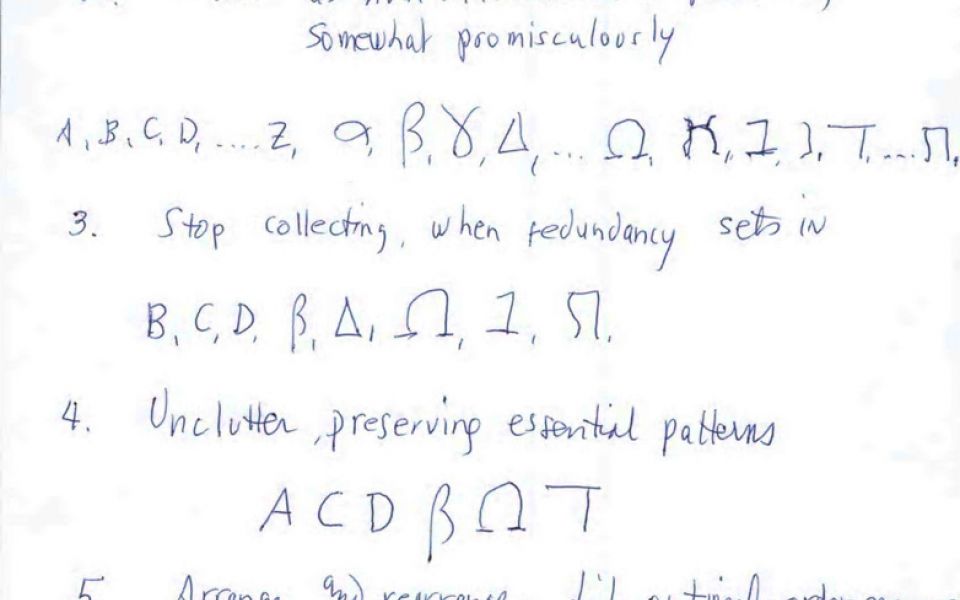 somewhat promisculously
A, B, C, D, .... Z, α, β, γ, Δ, ... Ω, א, ב, ג, ד, ... ת,
3. Stop collecting, when redundancy sets in
B, C, D, β, Δ, Ω, ב, ת,
4. Unclutter, preserving essential patterns
A C D β Ω ד
5. Arrange and rearrange